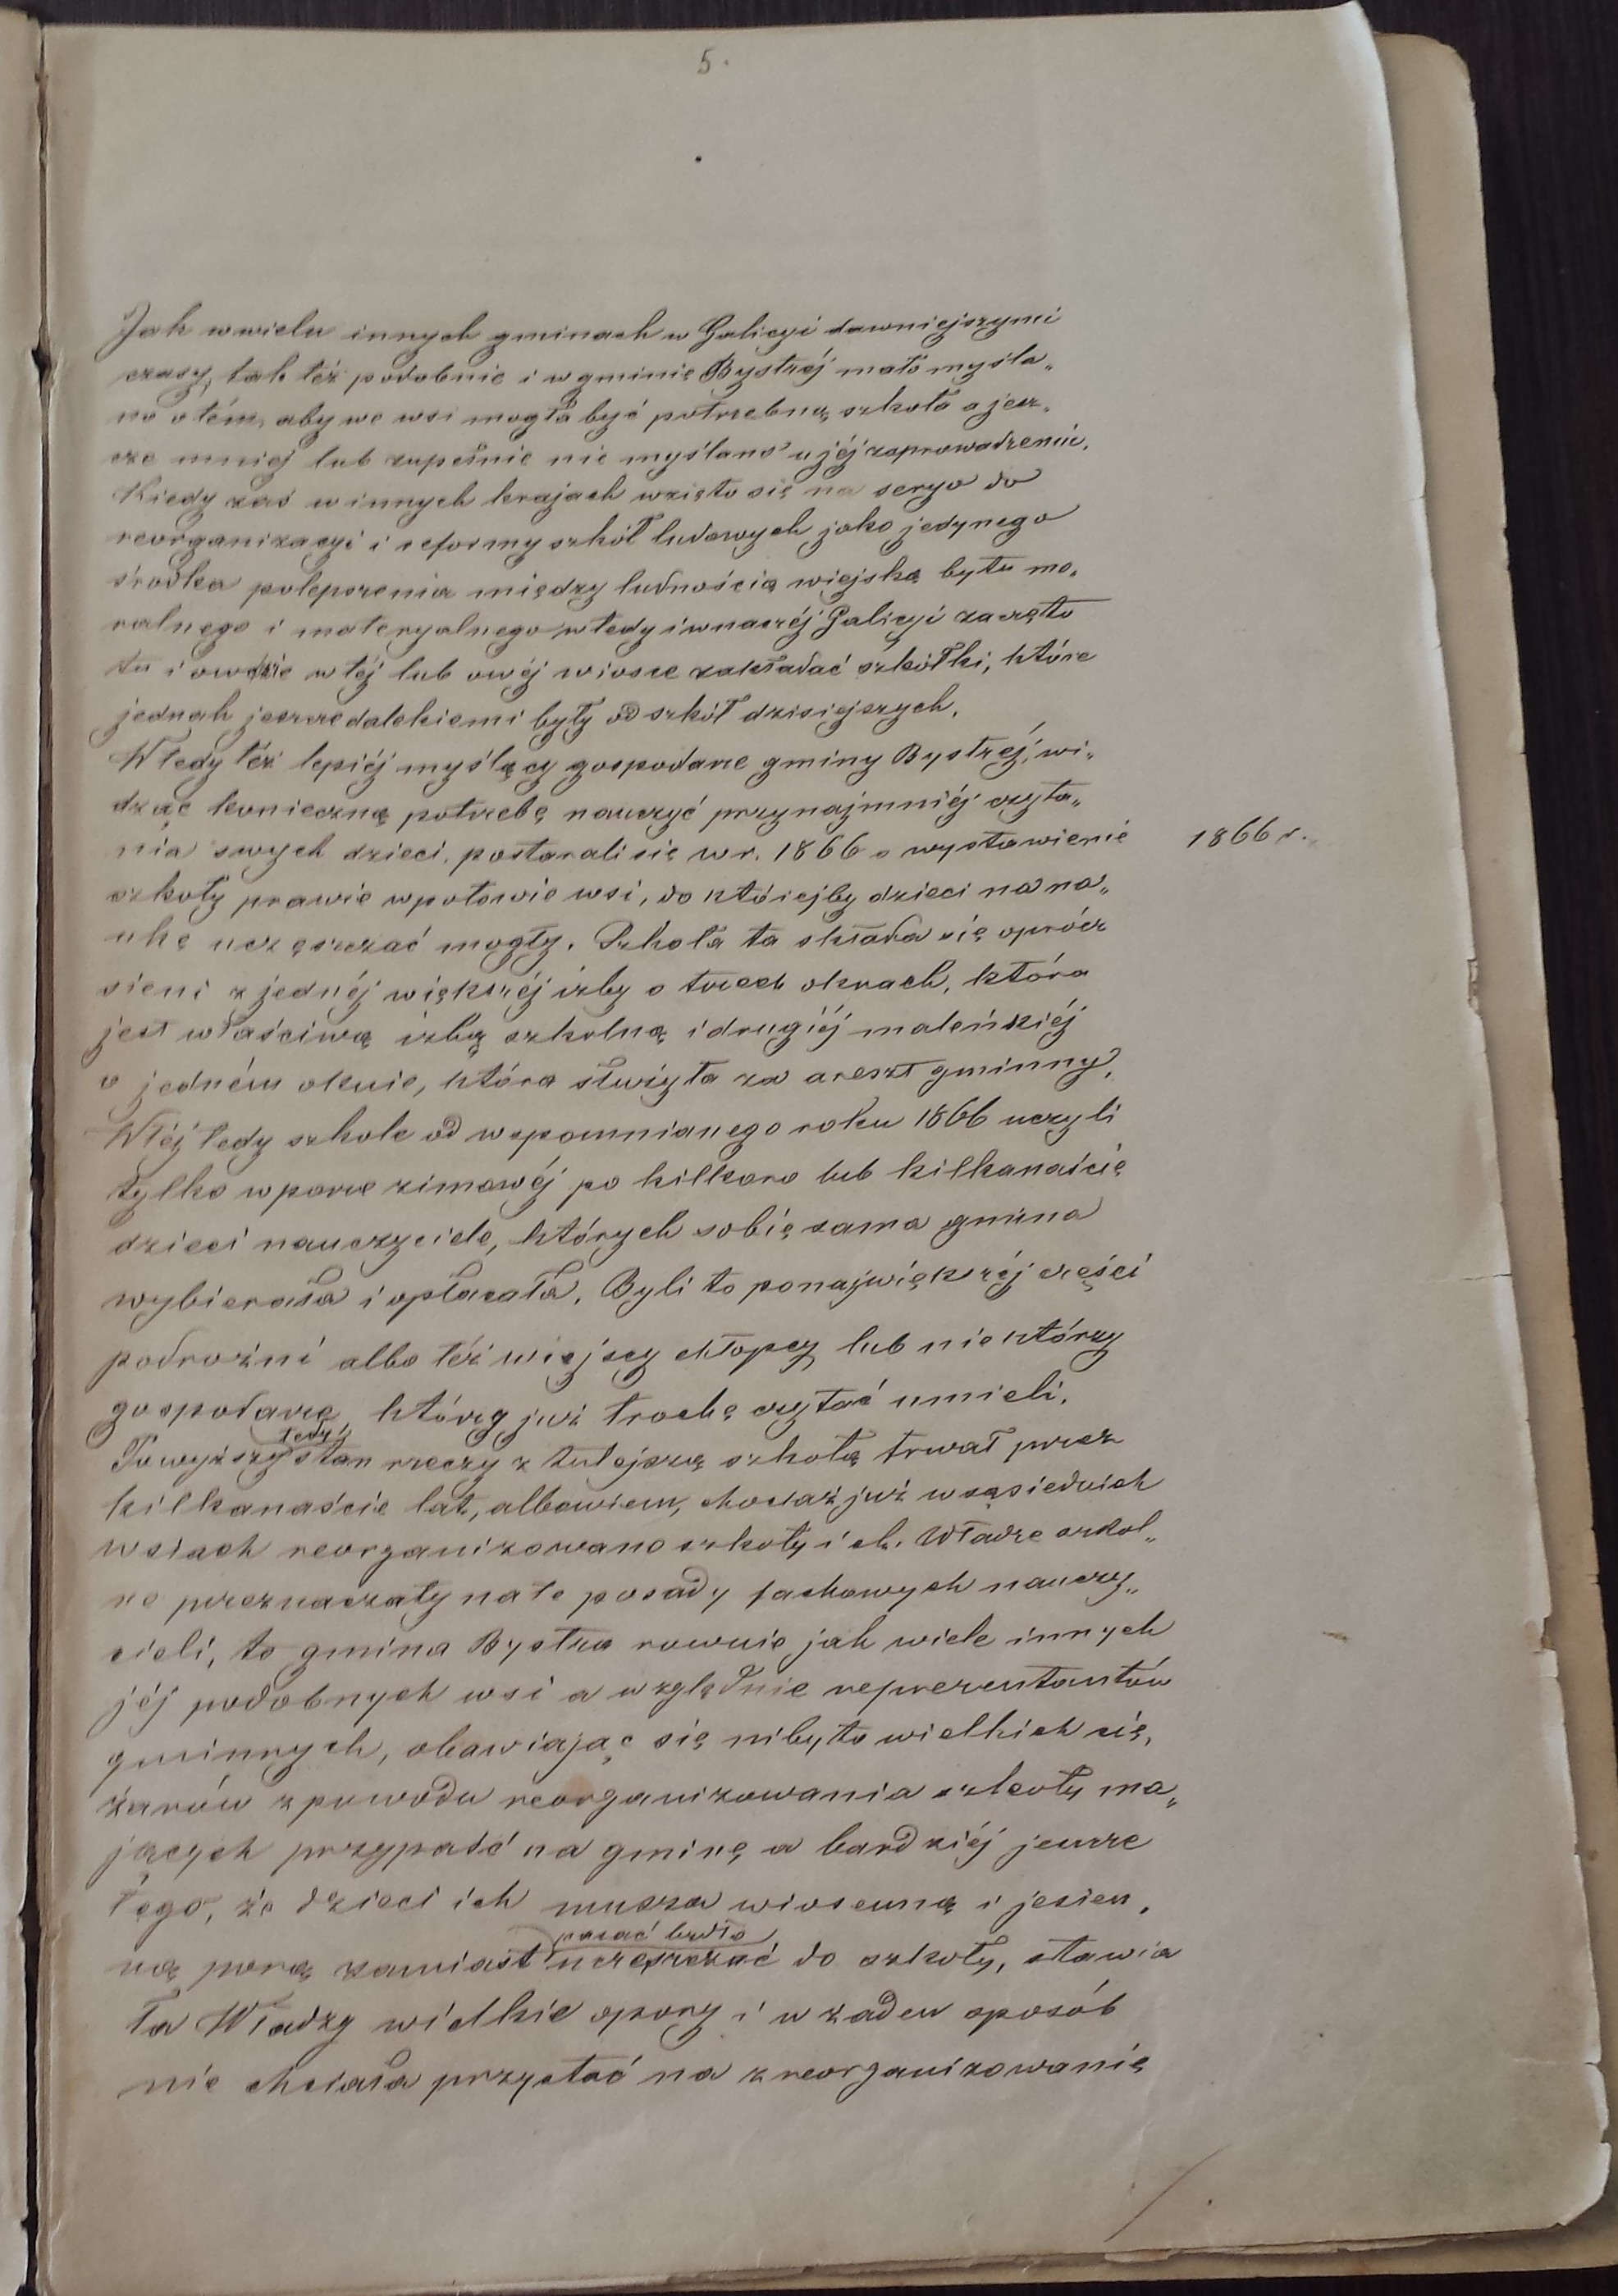 5.
Jak w wielu innych gminach w Galicyi dawniejszymi
czasy, tak téż podobnie i w gminie Bystréj mało myśla„
no o tém, aby we wsi mogła być potrzebną szkoła a jesz„
cze mniej lub zupełnie nie myślano o jéj zaprowadzeniu.
Kiedy zaś w innych krajach wzięto się na seryo do
reorganizacyi i reformy szkół ludowych jako jedynego
środka polepszenia między ludnością wiejską bytu mo„
ralnego i materyalnego wtedy i w naszéj Galicyi zaczęto
tu i owdzie w téj lub owéj wiosce zakładać szkółki, które
jednak jeszcze dalekiemi były od szkół dzisiejszych.
Wtedy téż lepiéj myślący gospodarze gminy Bystréj, wi„
dząc konieczną potrzebę nauczyć przynajmniéj czyta„
nia swych dzieci, postarali się w r. 1866 o wystawienie
1866 r.
szkoły prawie w połowie wsi, do któréjby dzieci na na„
ukę uczęszczać mogły. Szkoła ta składa się oprócz
sieni z jednéj większéj izby o trzech oknach, która
jest właściwą izbą szkolną i drugiéj maleńkiéj
o jedném oknie, która służyła za areszt gminny.
W téj tedy szkole od wspomnianego roku 1866 uczyli
tylko w porze zimowéj po kilkoro lub kilkanaście
dzieci nauczyciele, których sobie sama gmina
wybierała i opłacała. Byli to po największéj części
podrożni albo téż wiejscy chłopcy lub niektórzy
gospodarze, którzy już trochę czytać umieli.
tedy
Powyższy stan rzeczy z tutejszą szkołą trwał przez
kilkanaście lat, albowiem, chociaż już w sąsiednich
wsiach reorganizowano szkoły i ck. Władze szkol„
ne przeznaczały na te posady fachowych nauczy„
cieli, to gmina Bystra rownie jak wiele innych
jéj podobnych wsi a względnie reprezentantów
gminnych, obawiając się niby to wielkich cię„
żarów z powodu reorganizowania szkoły ma„
jących przypaść na gminę a bardziéj jeszcze
tego, że dzieci ich muszą wiosenną i jesien„
pasać bydło
ną porą zamiast uczęszczać do szkoły, stawia
ła Władzy wielkie opory i w żaden sposób
nie chciała przystać na zreorganizowanie